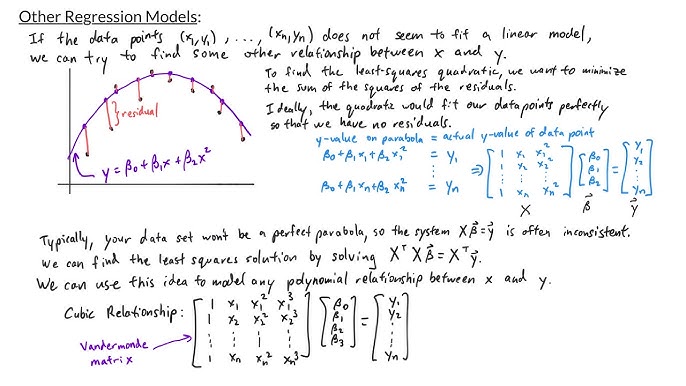 Other Regression Models:
If the data points (x₁,y₁) , . . . , (xₙ,yₙ) does not seem to fit a linear model,
we can try to find some other relationship between x and y.
To find the least-squares quadratic, we want to minimize
the sum of the squares of the residuals.
Ideally, the quadratic would fit our data points perfectly
so that we have no residuals.
residual
y = β₀ + β₁x + β₂x²
y-value on parabola = actual y-value of data point
β₀ + β₁x₁ + β₂x₁² = y₁
⋮
β₀ + β₁xₙ + β₂xₙ² = yₙ
⇒ [1 x₁ x₁²; 1 x₂ x₂²; ⋮ ⋮ ⋮; 1 xₙ xₙ²] [β₀; β₁; β₂] = [y₁; y₂; ⋮; yₙ]
X β⃗ y⃗
Typically, your data set won't be a perfect parabola, so the system Xβ⃗ = y⃗ is often inconsistent.
We can find the least squares solution by solving XᵀXβ⃗ = Xᵀy⃗.
We can use this idea to model any polynomial relationship between x and y.
Cubic Relationship: [1 x₁ x₁² x₁³; 1 x₂ x₂² x₂³; ⋮ ⋮ ⋮ ⋮; 1 xₙ xₙ² xₙ³] [β₀; β₁; β₂; β₃] = [y₁; y₂; ⋮; yₙ]
Vandermonde
matrix